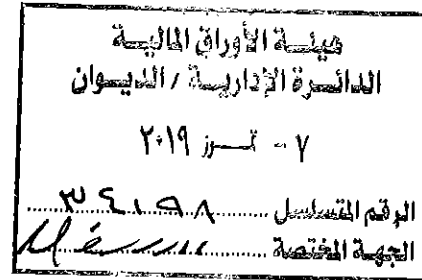 هيئة الأوراق المالية
الدائرة الإدارية / الديوان
٧ - تموز ٢٠١٩
الرقم المتسلسل ٣٤١٩٨
الجهة المختصة